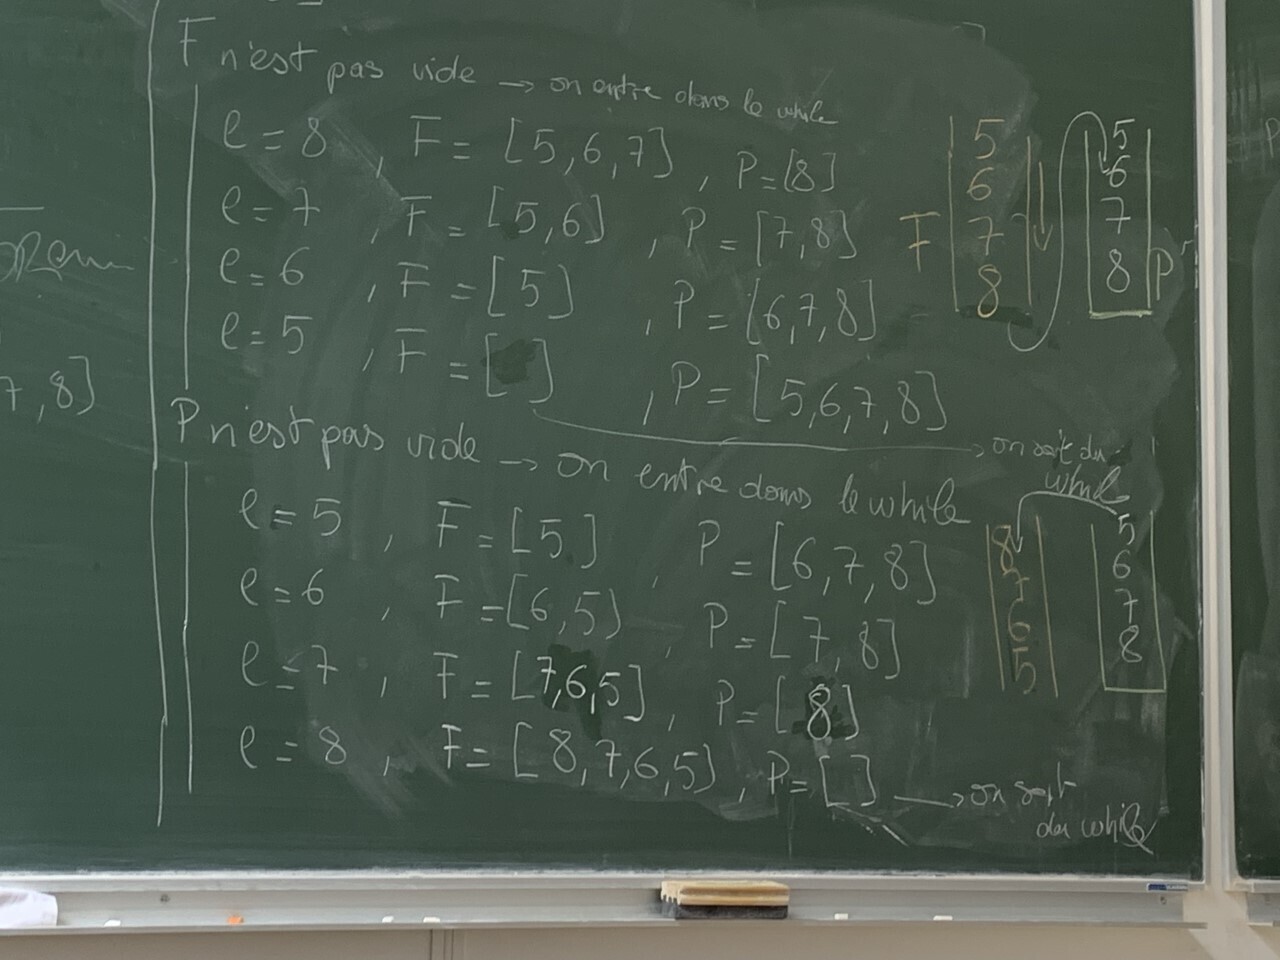 F n'est pas vide → on entre dans le while
e = 8 , F = [5,6,7] , P = [8]
e = 7 , F = [5,6] , P = [7,8]
e = 6 , F = [5] , P = [6,7,8]
e = 5 , F = [ ] , P = [5,6,7,8]
→ on sort du
while
P n'est pas vide → on entre dans le while
e = 5 , F = [5] , P = [6,7,8]
e = 6 , F = [6,5] , P = [7,8]
e = 7 , F = [7,6,5] , P = [8]
e = 8 , F = [8,7,6,5] , P = [ ] → on sort
du while
7,8]
5 5
6 6
F 7 7
8 8 P
8 5
7 6
6 7
5 8